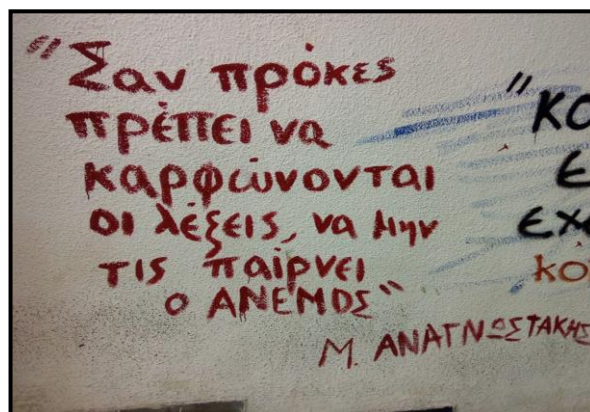 "Σαν πρόκες
πρέπει να
καρφώνονται
οι λέξεις, να μην
τις παίρνει
ο ΑΝΕΜΟΣ"
Μ. ΑΝΑΓΝΩΣΤΑΚΗΣ